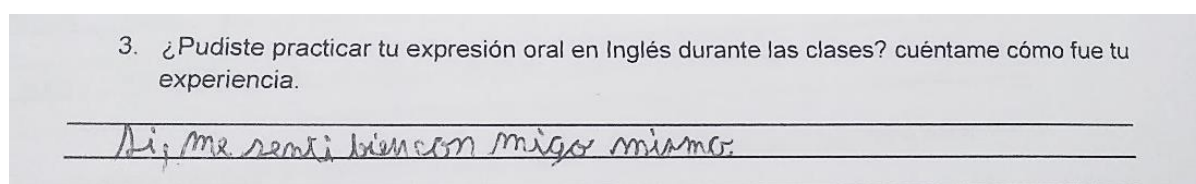 3. ¿Pudiste practicar tu expresión oral en Inglés durante las clases? cuéntame cómo fue tu
experiencia.
Si, me senti bien con migo mismo.